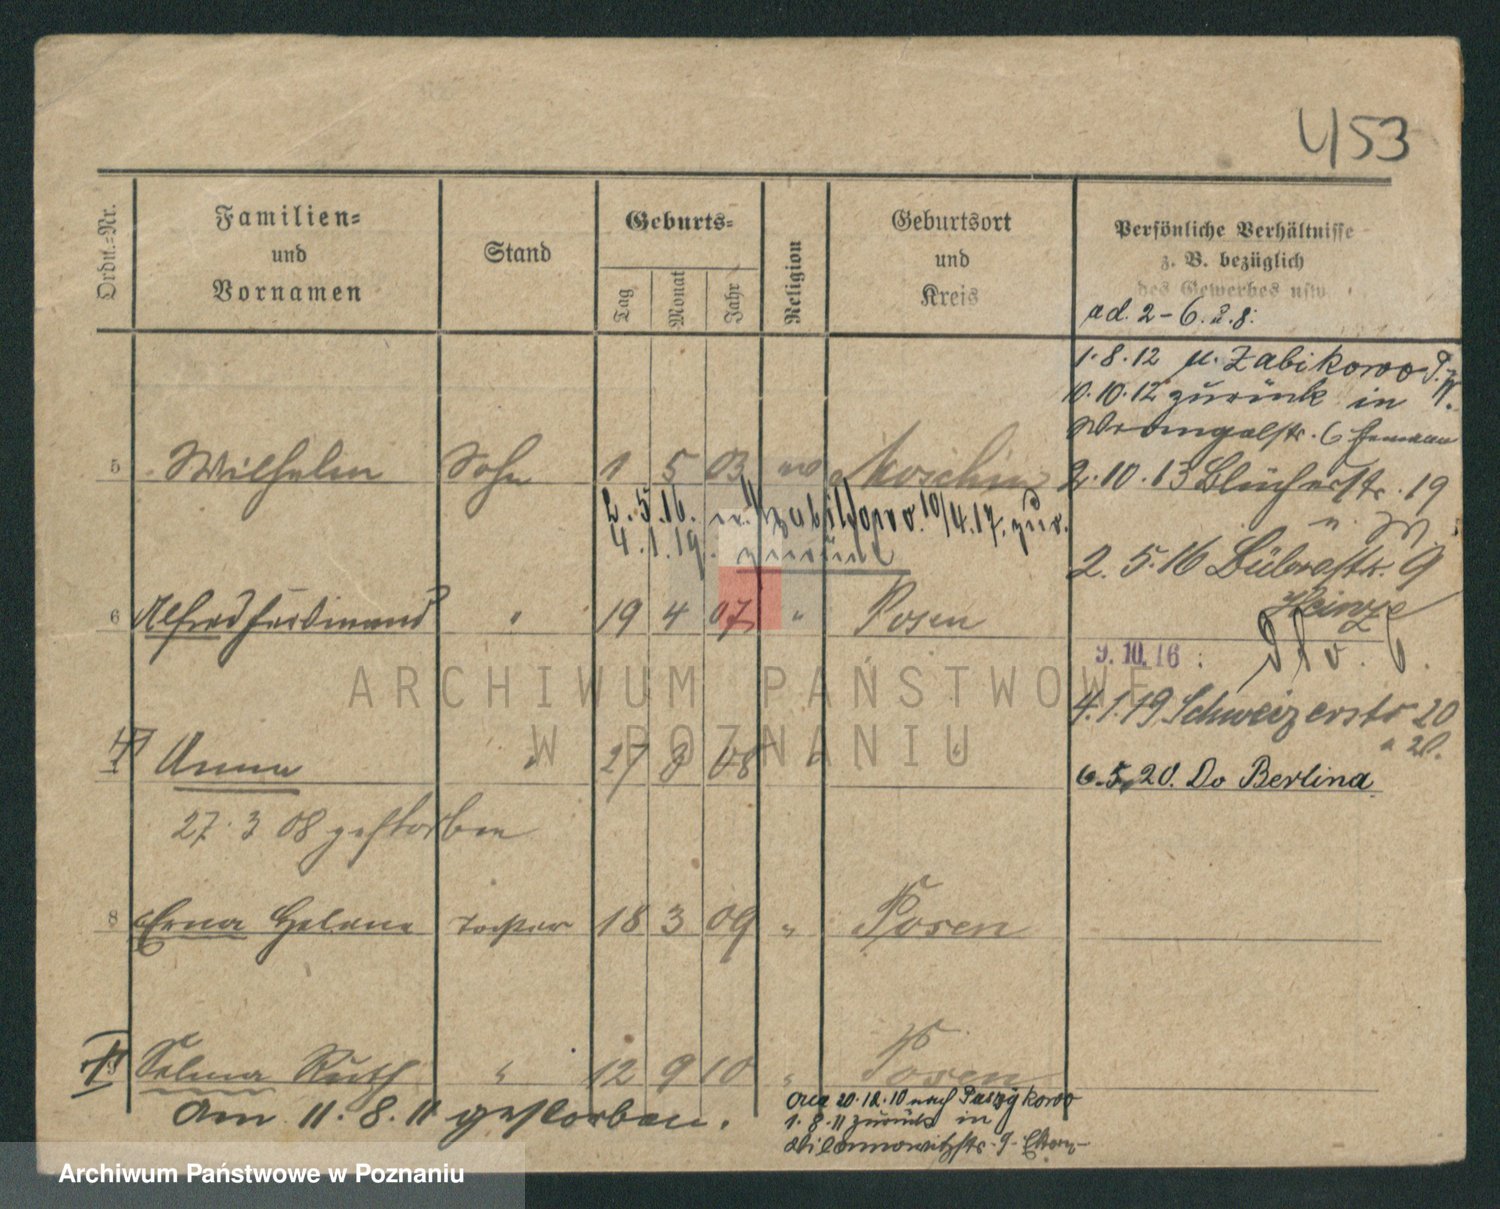 453
Ordn.-Nr.
Familien-
und
Vornamen
Stand
Geburts-
Tag
Monat
Jahr
Religion
Geburtsort
und
Kreis
Persönliche Verhältnisse
z. B. bezüglich
des Gewerbes usw.
ad. 2-6. u. 8.
1.8.12 n. Zabikowo
10.10.12 zurück in
Wrangelstr. 6
5 Wilhelm Sohn 1 5 03 Moschin
2.10.13 Blücherstr. 19
2.5.16. 10/4.17. zur.
4.1.19. zurück
2.5.16 9
Heinze
6 Alfred Ferdinand " 19 4 07 " Posen
9.10.16
ARCHIWUM PAŃSTWOWE
W POZNANIU
4.1.19 Schweizerstr 20
Anna " 27 3 08 " "
6.5.20. Do Berlina
27.3 08 gestorben
8 Erna Helene Tochter 18 3 09 " Posen
Selma Ruth " 12 9 10 " Posen
Am 11.8.11 gestorben.
20.12.10 nach
1.8.11 zurück in
Archiwum Państwowe w Poznaniu